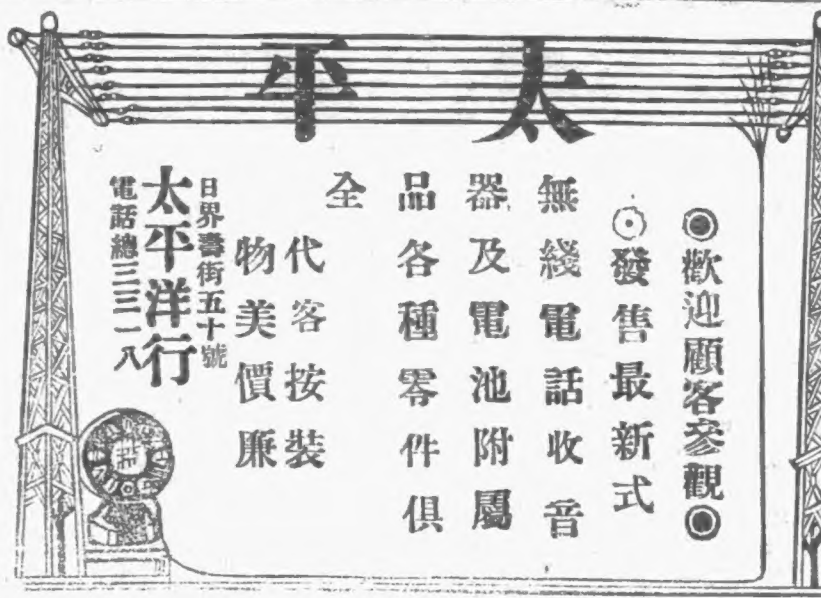 太平
◉歡迎顧客參觀◉
⊙發售最新式
無綫電話收音
器及電池附屬
品各種零件俱
全
代客按裝
物美價廉
日界壽街五十號
太平洋行
電話總三三一八